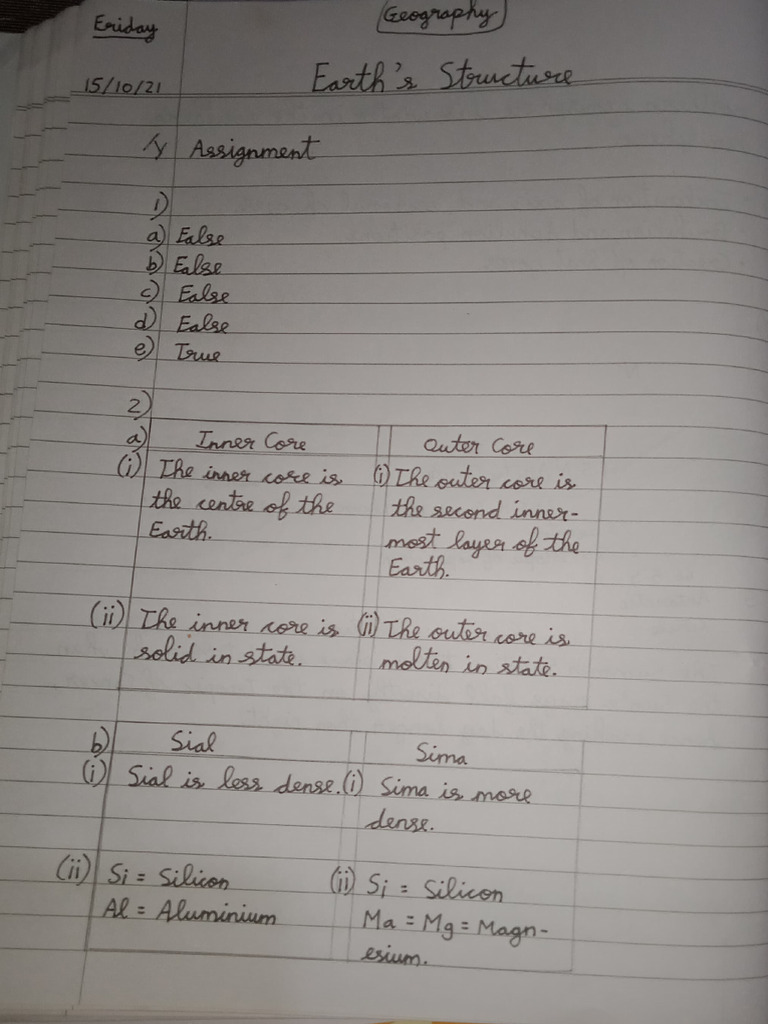 Geography
Friday
15/10/21 Earth's Structure
1/ Assignment
1)
a) False
b) False
c) False
d) False
e) True
2)
a) Inner Core Outer Core
(i) The inner core is (i) The outer core is
the centre of the the second inner-
Earth. most layer of the
Earth.
(ii) The inner core is (ii) The outer core is
solid in state. molten in state.
b) Sial Sima
(i) Sial is less dense. (i) Sima is more
dense.
(ii) Si = Silicon (ii) Si = Silicon
Al = Aluminium Ma = Mg = Magn-
esium.